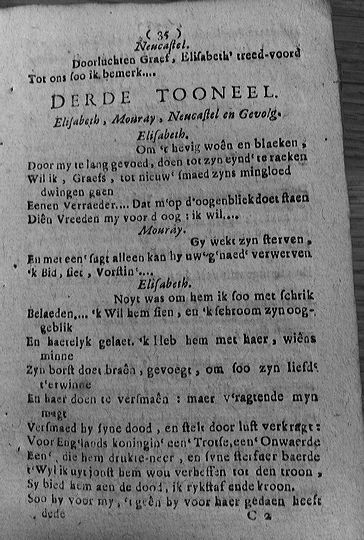 ( 35 )
Neucastel.
Doorluchten Graef, Elisabeth' treed-voord
Tot ons soo ik bemerk....
DERDE TOONEEL.
Elisabeth, Mouray, Neucastel en Gevolg.
Elisabeth.
Om 't hevig woên en blaeken,
Door my te lang gevoed, doen tot zyn eynd' te raeken
Wil ik, Graefs, tot nieuw' smaed zyns mingloed
dwingen gaen
Eenen Verraeder.... Dat m'op d'oogenblik doet staen
Diên Vreeden my voor d oog: ik wil....
Mouray.
Gy wekt zyn sterven,
En met een' sugt alleen kan hy uw' g'naed' verwerven
'k Bid, siet, Vorstin'....
Elisabeth.
Noyt was om hem ik soo met schrik
Belaeden.... 'k Wil hem sien, en 'k schroom zyn oog-
geblik
En haetelyk gelaet. 'k Heb hem met haer, wiêns
minne
Zyn borst doet braên, gevoegt, om soo zyn liefd'
t'erwinne
En haer doen te versmaên: maer v'ragtende myn
magt
Versmaed hy syne dood, en stelt door lust verkragt:
Voor Eng'lands koningin' een' Trotse, een' Onwaerde
Een', die hem drukte-neer, en syne
t'Wyl ik uyt jonst hem wou verheffen tot den troon,
Sy bied hem aen de dood, ik rykstaf ende kroon.
Soo hy voor my, 't geên hy voor haer gedaen heeft
dede C 2